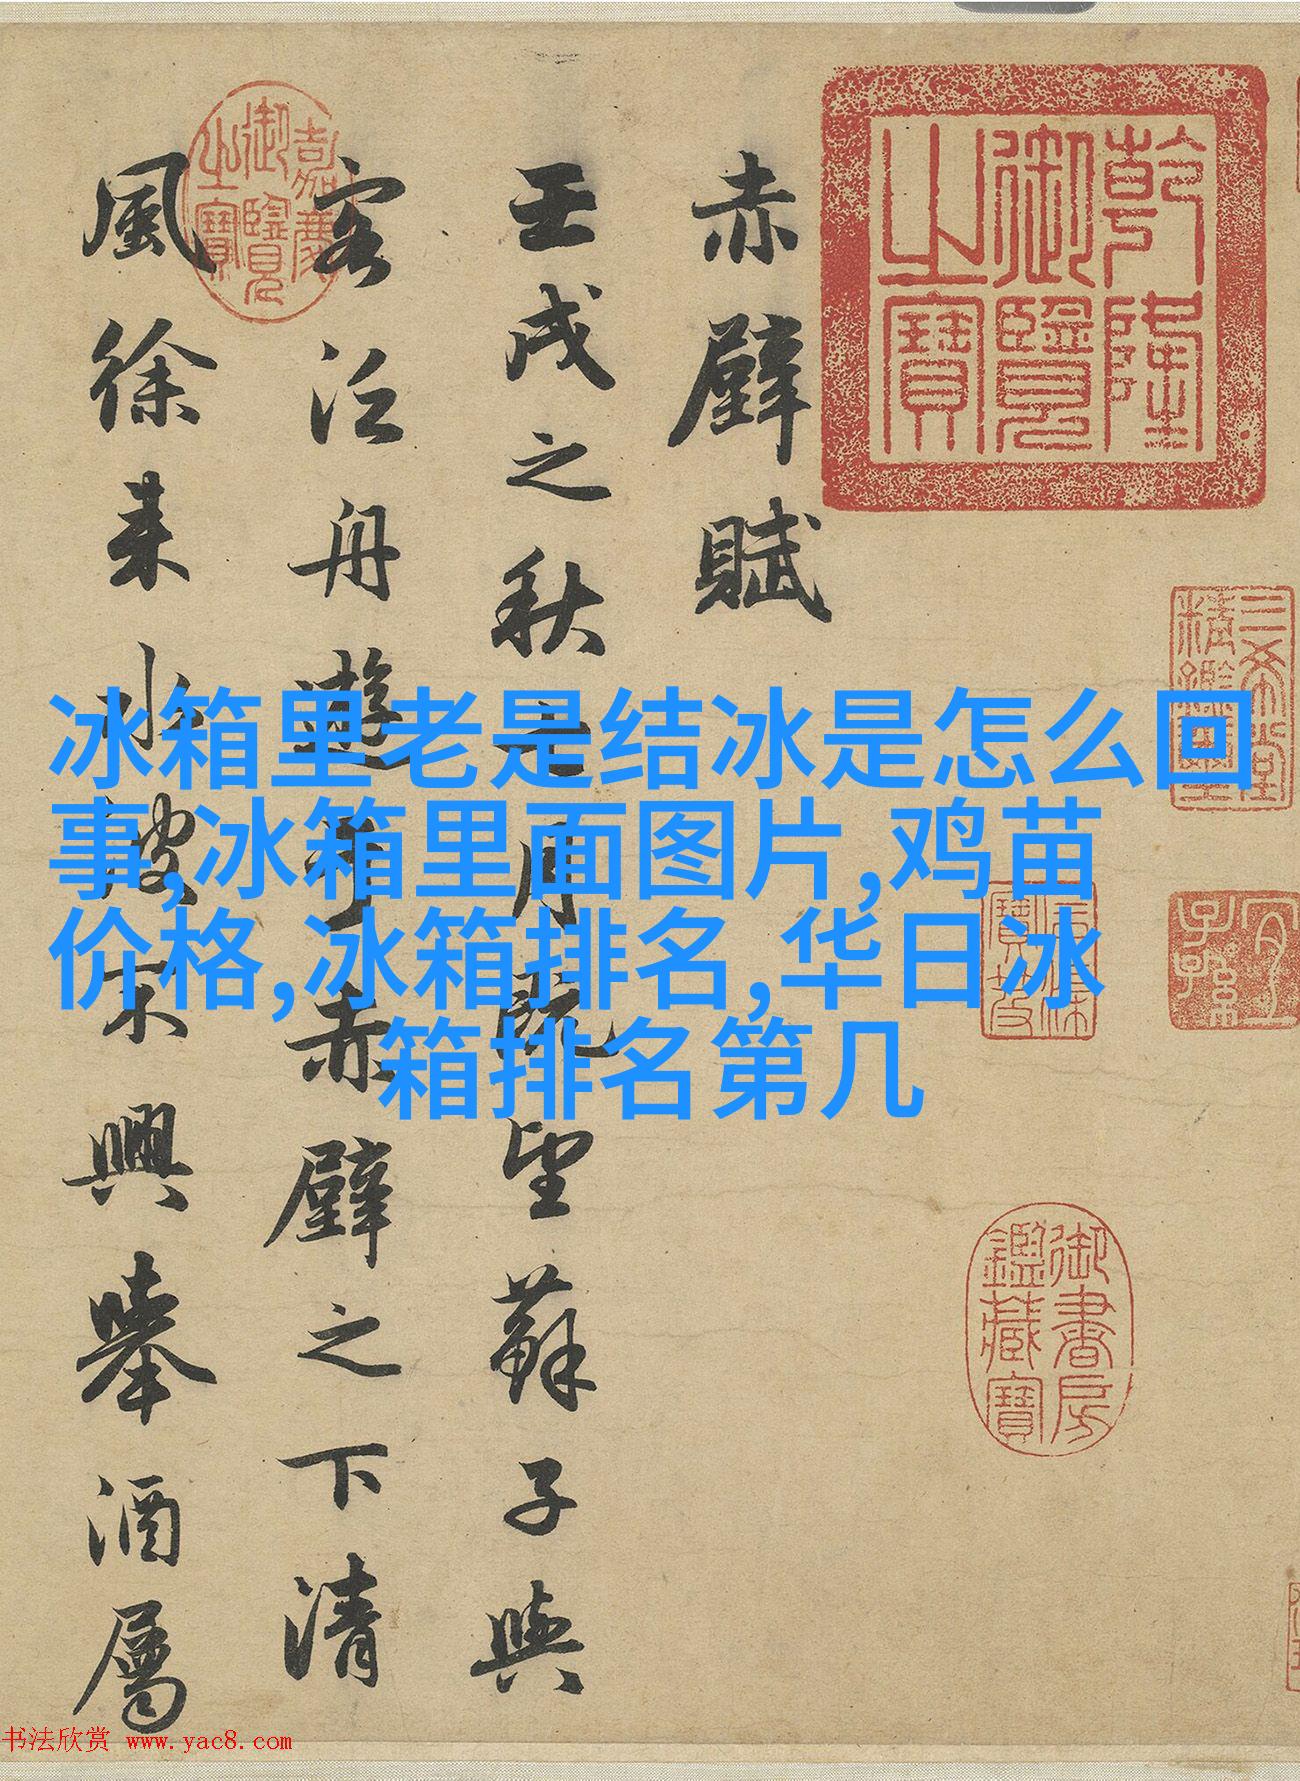 赤壁賦
壬戌之秋七月既望蘇子與
客泛舟遊于赤壁之下清
風徐来水波不興舉酒屬
乾隆御覽之寶
嘉慶御覽之寶
三希堂精鑑璽
宜子孫
御書房鑑藏寶
冰箱里老是结冰是怎么回
事,冰箱里面图片,鸡苗
价格,冰箱排名,华日冰
箱排名第几
书法欣赏 www.yac8.com